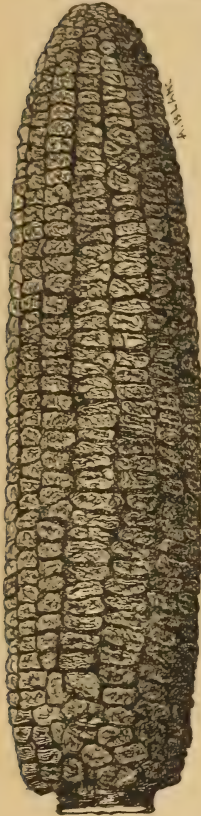 A. BLANC.